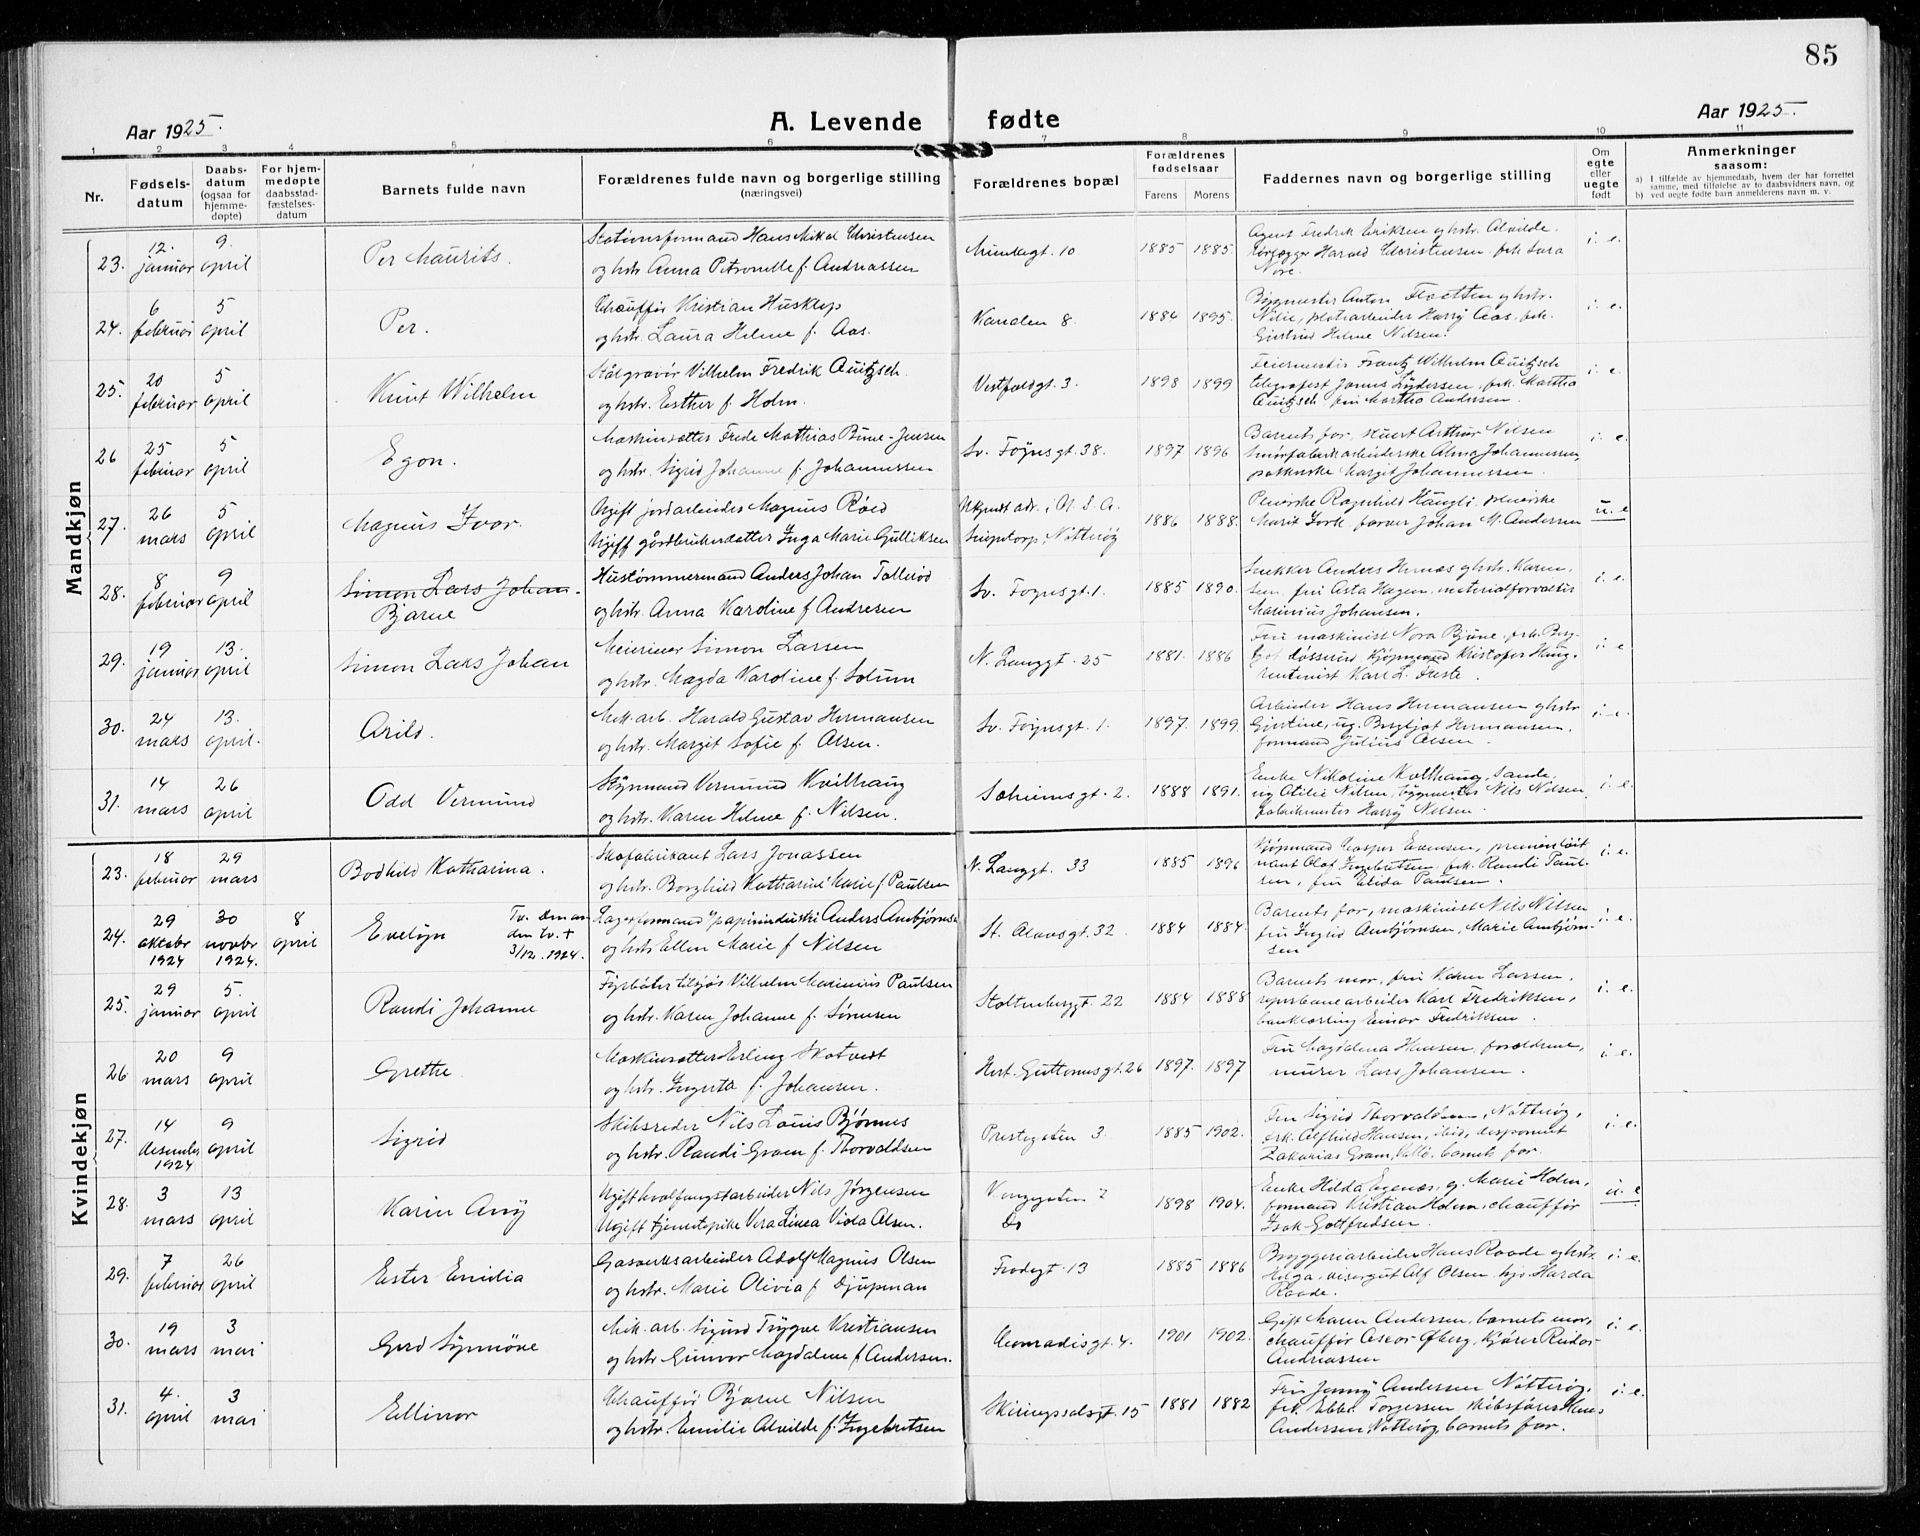 85
Aar 1925.
A. Levende fødte
Aar 1925.
1 2 3 4 5 6 7 8 9 10 11
Nr.
Fødsels-
datum
Daabs-
datum
(ogsaa for
hjemme-
døpte)
For hjem-
medøpte
daabsstad-
fæstelses-
datum
Barnets fulde navn
Forældrenes fulde navn og borgerlige stilling
(næringsvei)
Forældrenes bopæl
Forældrenes
fødselsaar
Farens Morens
Faddernes navn og borgerlige stilling
Om
egte
eller
uegte
født
Anmerkninger
saasom:
a) I tilfælde av hjemmedaab, hvem der har forrettet
samme, med tilføielse av to daabsvidners navn, og
b) ved uegte fødte barn anmelderens navn m. v.
Mandkjøn
23. 12. januar 9. april Per Maurits.
Stationsformand Hans Mikal Christensen
og hstr. Anna Petronelle f. Andreassen
Mundegt. 10 1885 1885.
Agent Fredrik Eriksen og hstr. Alvilde,
Harald Christensen, frk. Sara
Nore. i. e.
24. 6 februar 5 april Per.
Chauffør Kristian Huskløp
og hstr. Laura Helene f. Aas.
Kanalen 8. 1884 1895.
Bygmester Anton Floetten og hstr.
platearbeider Harry Aas, frk.
Gjertrud Helene Nilsen. i. e.
25. 20 februar 5 april Knut Wilhelm
Stålgravør Vilhelm Fredrik Quitzsch.
og hstr. Esther f. Holm.
Vestfoldgt. 3. 1898 1899
Feiermester Frantz Wilhelm Quitzsch
telegrafist Jonas Lydersen, frk. Martha
Quitzsch, fru Martha Andersen. i. e.
26 25 februar 5 april Egon.
Maskinsætter Frede Mathias Bune-Jensen
og hstr. Sigrid Johanne f. Johannessen
Sv. Føynsgt. 38. 1897 1896
Barnets far, Arthur Nilsen
smørfabrikarbeiderske Alma Johannessen,
pakkerske Margit Johannessen. i. e.
27. 26 mars 5 april Magnus Ivar.
Ugift jordarbeider Magnus Røed
Ugift gårdbrukerdatter Inga Marie Gulliksen
Ukjendt adr. i U. S. A.
Nøtterøy 1886 1888.
Pleierske Ragnhild Haugli, pleierske
Marit Fork, farver Johan M. Andersen u. e
28. 8 februar 9 april Simon Lars Johan.
Bjarne
Hustømmermand Anders Johan Tollerød
og hstr. Anna Karoline f. Andresen
Sv. Foynsgt. 1. 1885 1890.
Snekker Anders Hernæs og hstr. Karen,
Sem, fru Asta Hagen, materialforvalter
Marinius Johansen. i. e
29. 19 januar 13. april Simon Lars Johan
Meierieier Simon Larsen
og hstr. Magda Karoline f. Solum
N. Langgt. 25 1881. 1886
Fru maskinist Nora Bjune, frk. Berg-
ljot Kjøpmand Kristofer Haug,
rentenist Karl L. Freste. i. e
30. 24 mars 13. april. Arild.
Mek. arb. Harald Gustav Hermansen
og hstr. Margit Sofie f. Olsen.
Sv. Føynsgt. 1. 1897. 1899
Arbeider Hans Hermansen og hstr.
Gjertine, ug. Bergljot Hermansen,
formand Julius Olsen. i. e.
31. 14 mars 26 april Odd Vermund
Styrmand Vermund Kvilhaug
og hstr. Karen Helene f. Nilsen.
Solheimsgt. 2. 1888 1891.
Enke Nikoline Kvilhaug, Sande,
ug Otilie Nilsen, bygmester Nils Nilsen,
fabrikmester Harry Nilsen. i. e.
Kvindekjøn
23. 18 februar 29 mars Bodhild Katharina.
Skofabrikant Lars Jonassen
og hstr. Borghild Katharine Marie f. Paulsen
N. Langgt. 33 1885 1896
Kjøpmand Casper Evensen, premierløit-
nant Olaf Ingebretsen, frk. Randi Paul-
sen, fru Elida Paulsen. i. e.
24. 29 oktobr 1924 30 novbr 1924. 8 april Evelyn
Tv. Den an
den tv. +
3/12. 1924.
Lagerformand v. papirindustri Anders Ambjørnsen
og hstr Ellen Marie f Nilsen
St. Olavsgt. 32 1884 1884.
Barnets far, maskinist Nils Nilsen
fru Ingrid Ambjørnsen, Marie Ambjørn-
sen i. e.
25. 29 januar 5. april Randi Johanne
Fyrbøter tilsjøs Vilhelm Marinius Paulsen
og hstr. Karen Johanne f. Sørensen
Stoltenbergt. 22 1884 1888
Barnets mor, fru Karen Larsen,
reperbanearbeider Karl Fredriksen,
banklærling Einar Fredriksen. i. e.
26 20 mars 9 april Grethe.
Maskinsætter Erling Skatvedt
og hstr. Ingerta f. Johansen.
Hert. Guttormsgt. 26 1897. 1897
Fru Magdalena Hansen, forældrene,
murer Lars Johansen. i. e
27. 14 desember 1924 9 april Sigrid
Skibsreder Nils Louis Bjørnes
og hstr. Randi Gram f. Thorvaldsen
Prestegaten 3. 1885 1902.
Fru Sigrid Thorvaldsen, Nøtterøy,
frk. Alfhild Hansen, ibid, disponent
Zakarias Gram, Vallø, barnets far. i. e.
28. 3 mars 13 april Karin Any
Ugift hvalfangstarbeider Nils Jørgensen
Ugift tjenestepike Vera Linea Viola Olsen.
Do 1898 1904.
Enke Hilda Egenæs, g. Marie Holm,
formand Kristian Holm, chauffør
Isak Gottfredsen. u. e
29. 7 februar 26 april Ester Emilia
Gasverksarbeider Adolf Magnus Olsen
og hstr. Marie Olivia f Djupman
Frodegt. 13 1885 1886
Bryggeriarbeider Hans Raade og hstr
Helga, visergut Alf Olsen, hjv. Harda
Raade. i. e.
30. 19 mars 3 mai Gerd Synnøve
Mek. arb. Sigurd Trygve Kristiansen
og hstr. Gunvor Magdalene f. Andersen.
Conradisgt. 4. 1901 1902.
Gift Maren Andersen, barnets mor,
chauffør Oscar Øberg, kjører Reidar
Andreassen i. e.
31. 4. april 3 mai Ellinor
Chauffør Bjarne Nilsen
og hstr. Emilie Alvilde f. Ingebretsen
Skiringssalsgt. 15 1881 1882
Fru Jenny Andersen Nøtterøy,
frk. Ebba Torgersen, skibsfører
Andersen, Nøtterøy, barnets far. i. e.